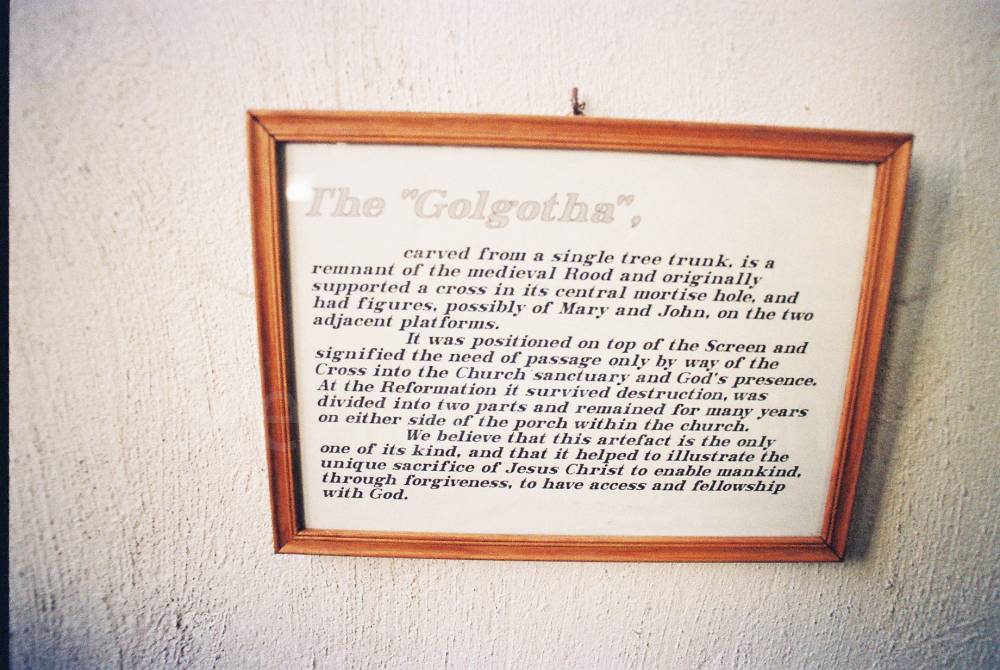 The "Golgotha",
carved from a single tree trunk, is a
remnant of the medieval Rood and originally
supported a cross in its central mortise hole, and
had figures, possibly of Mary and John, on the two
adjacent platforms.
It was positioned on top of the Screen and
signified the need of passage only by way of the
Cross into the Church sanctuary and God's presence.
At the Reformation it survived destruction, was
divided into two parts and remained for many years
on either side of the porch within the church.
We believe that this artefact is the only
one of its kind, and that it helped to illustrate the
unique sacrifice of Jesus Christ to enable mankind,
through forgiveness, to have access and fellowship
with God.